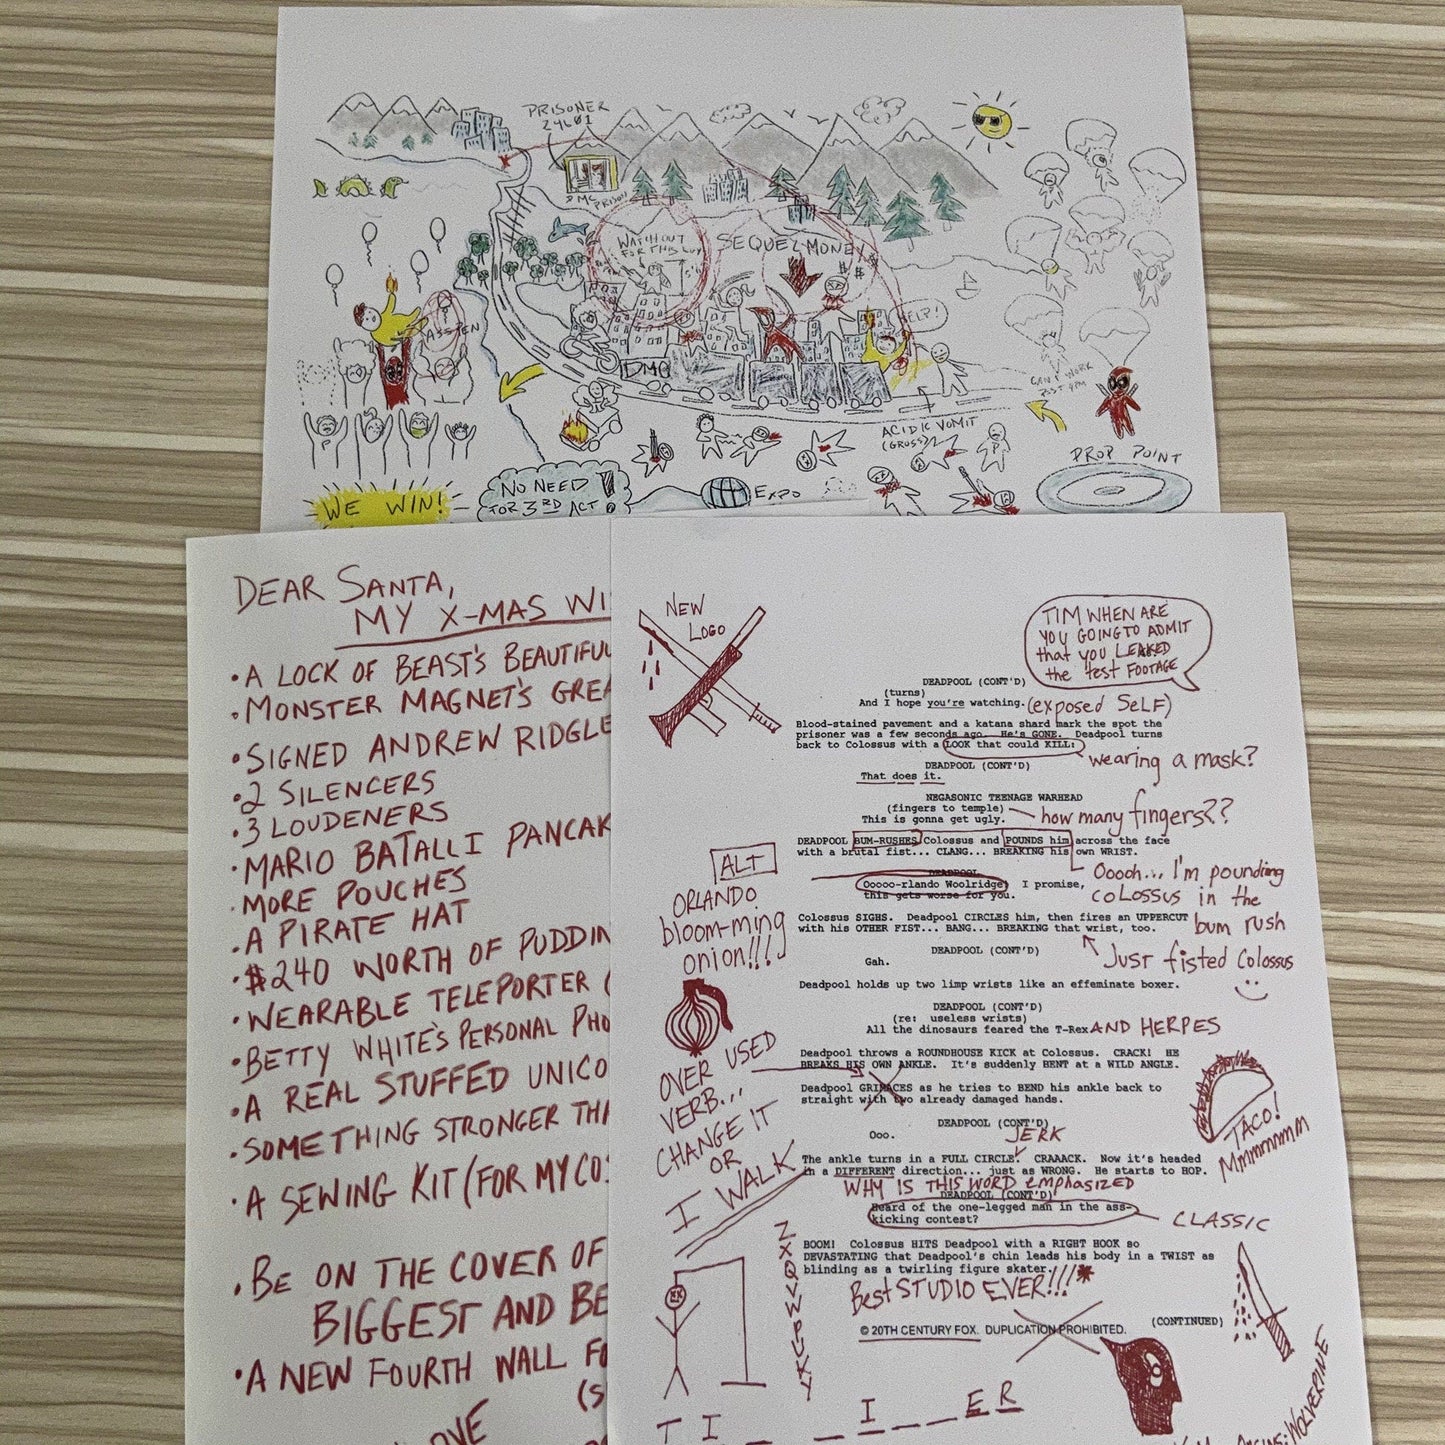 PRISONER
24601
DMC PRISON
WATCH OUT
FOR THIS GUY
SEQUEL MONEY
$$
HELP!
DMC
CAN'T WORK
PAST 4PM
ACIDIC VOMIT
(GROSS)
DROP POINT
WE WIN!
NO NEED
FOR 3RD ACT!
EXPO
DEAR SANTA,
MY X-MAS WI
• A LOCK OF BEAST'S BEAUTIFUL
• MONSTER MAGNET'S GREA
• SIGNED ANDREW RIDGLE
• 2 SILENCERS
• 3 LOUDENERS
• MARIO BATALLI PANCAK
• MORE POUCHES
• A PIRATE HAT
• $240 WORTH OF PUDDIN
• WEARABLE TELEPORTER (
• BETTY WHITE'S PERSONAL PHO
• A REAL STUFFED UNICO
• SOMETHING STRONGER THA
• A SEWING KIT (FOR MY COS
• BE ON THE COVER OF
BIGGEST AND BE
• A NEW FOURTH WALL FO
(S
OVE
NEW
LOGO
TIM WHEN ARE
YOU GOING TO ADMIT
that you LEAKED
the test FOOTAGE
DEADPOOL (CONT'D)
(turns)
And I hope you're watching. (exposed SELF)
Blood-stained pavement and a katana shard mark the spot the
prisoner was a few seconds ago. He's GONE. Deadpool turns
back to Colossus with a LOOK that could KILL:
wearing a mask?
DEADPOOL (CONT'D)
That does it.
NEGASONIC TEENAGE WARHEAD
(fingers to temple)
how many fingers??
This is gonna get ugly.
DEADPOOL BUM-RUSHES Colossus and POUNDS him across the face
with a brutal fist... CLANG... BREAKING his own WRIST.
ALT
ORLANDO
bloom-ming
onion!!!
DEADPOOL
Ooooo-rlando Woolridge! I promise,
this gets worse for you.
Ooooh... I'm pounding
COLOSSUS in the
bum rush
Colossus SIGHS. Deadpool CIRCLES him, then fires an UPPERCUT
with his OTHER FIST... BANG... BREAKING that wrist, too.
Just fisted Colossus
DEADPOOL (CONT'D)
Gah.
Deadpool holds up two limp wrists like an effeminate boxer.
DEADPOOL (CONT'D)
(re: useless wrists)
All the dinosaurs feared the T-Rex AND HERPES
OVER USED
VERB...
CHANGE IT
OR
I WALK
Deadpool throws a ROUNDHOUSE KICK at Colossus. CRACK! HE
BREAKS HIS OWN ANKLE. It's suddenly BENT at a WILD ANGLE.
Deadpool GRIMACES as he tries to BEND his ankle back to
straight with two already damaged hands.
TACO!
Mmmmmmm
DEADPOOL (CONT'D)
Ooo.
JERK
The ankle turns in a FULL CIRCLE. CRAAACK. Now it's headed
in a DIFFERENT direction... just as WRONG. He starts to HOP.
WHY IS THIS WORD emphasized
DEADPOOL (CONT'D)
Heard of the one-legged man in the ass-
kicking contest?
CLASSIC
BOOM! Colossus HITS Deadpool with a RIGHT HOOK so
DEVASTATING that Deadpool's chin leads his body in a TWIST as
blinding as a twirling figure skater.
Best STUDIO EVER!!!*
(CONTINUED)
© 20TH CENTURY FOX. DUPLICATION PROHIBITED.
Z
X
Q
V
W
P
U
K
Y
T I _ _ I _ _ E R
: WOLVERINE